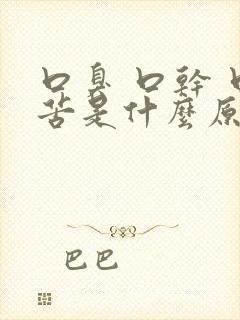 口臭 口幹 口
苦是什麼原
巴巴